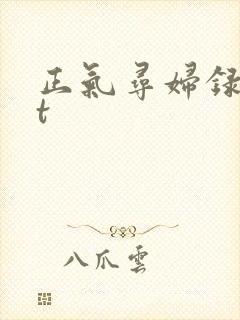 正氣尋婦録
t
八爪雲